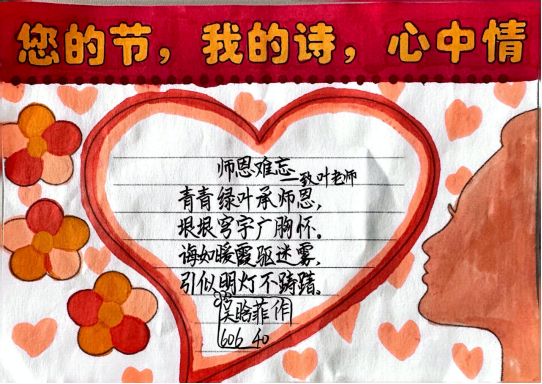 您的节，我的诗，心中情
师恩难忘
—致叶老师
青青绿叶承师恩，
垠垠穹宇广胸怀。
诲如暖霞驱迷雾，
引似明灯不踌躇。
吴晗菲作
606 40